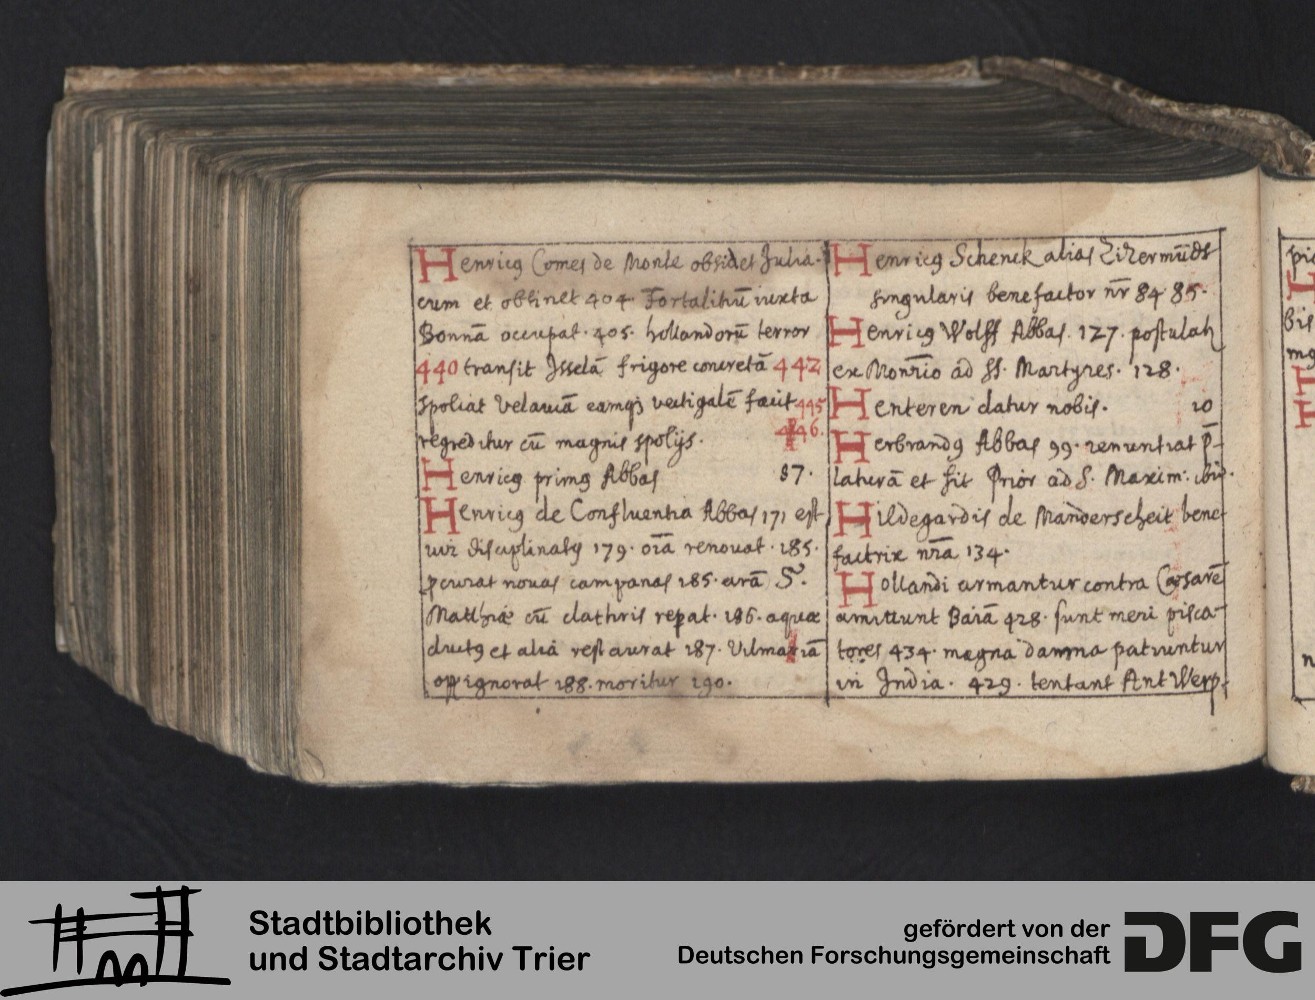 Henricꝯ Comes de Monte obsidet Julia-
cum et obtinet 404. Fortalitiū iuxta
Bonnā occupat. 405. hollandorū terror
440 transit Isselā frigore concretā 442
spoliat Velauiā eamqꝫ vectigalē facit 445
regreditur cū magnis spolijs. 446.
Henricꝯ primꝯ Abbas 87.
Henricꝯ de Confluentia Abbas 171 est
uir disciplinatꝯ 179. oīa renouat. 185.
ꝓcurat nouas campanas 185. arā S.
Matthiæ cū clathris reꝑat. 186. aquæ
ductꝯ et alia restaurat 187. Vilmariā
oppignorat 188. moritur 190.
Henricꝯ Schenck alias
singularis benefactor nr̄ 84. 85.
Henricꝯ Wolff Abbas. 127. postulatꝯ
ex Monrio ad SS. Martyres. 128.
Henteren datur nobis. 10
Herbrandꝯ Abbas 99. renuntiat p̄-
laturā et fit Prior ad S. Maxim: ibid.
Hildegardis de Manderscheit bene-
factrix nr̄a 134.
Hollandi armantur contra Cæsarē
amittunt Baiā 428. sunt meri pisca-
tores 434. magna damna patiuntur
in India. 429. tentant Antwerp-
pi
bis
Stadtbibliothek
und Stadtarchiv Trier
gefördert von der
Deutschen Forschungsgemeinschaft
DFG